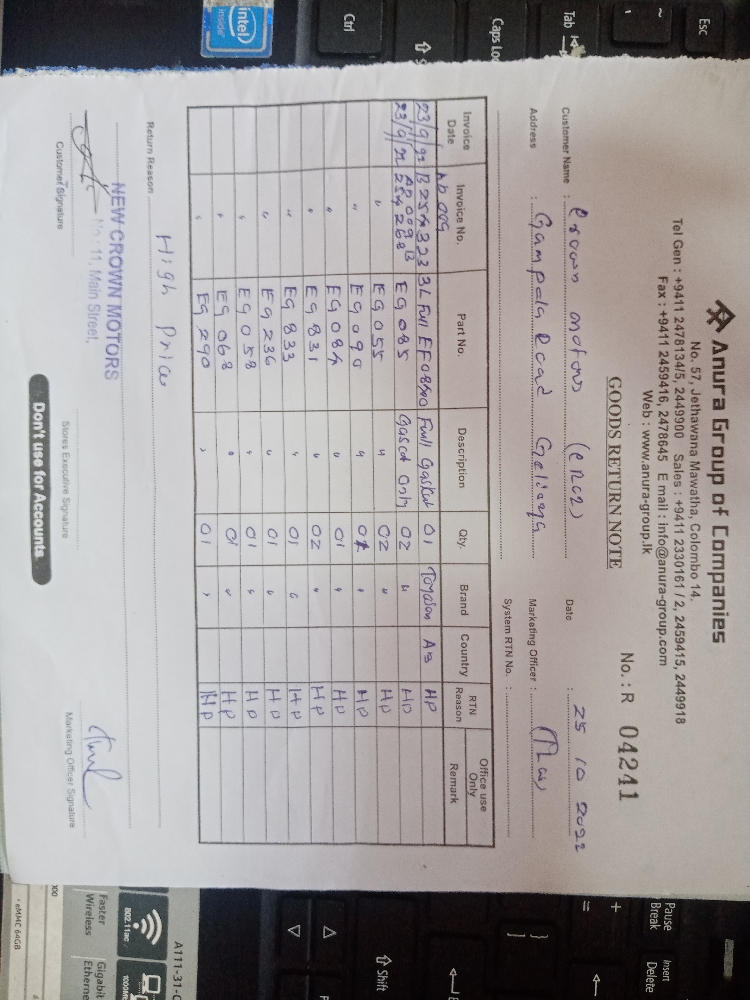 Anura Group of Companies
No. 57, Jethawana Mawatha, Colombo 14.
Tel Gen : +9411 2478134/5, 2449900 Sales : +9411 2330161 / 2, 2459415, 2449918
Fax : +9411 2459416, 2478645 E mail : info@anura-group.com
Web : www.anura-group.lk
GOODS RETURN NOTE
No. : R 04241
Customer Name : Crown motors Date : 25 10 2022
Address : Gampola Road Gelioya Marketing Officer :
System RTN No. :
Invoice Date Invoice No. Part No. Description Qty. Brand Country RTN Reason Office use Only Remark
23/9/22 AD 009 B 254323 3L Full Full Gasket 01 HP
23/9/22 AD 009 B 254268 EG 085 Gasct Only 02 " HP
" EG 055 " 02 " HP
" EG 090 " HP
" EG 084 " 01 " HP
" EG 831 " 02 " HP
" EG 833 " 01 " HP
" EG 236 " 01 " HP
" EG 058 " 01 " HP
" EG 068 " 01 " HP
" EG 290 " 01 " HP
Return Reason : High price
NEW CROWN MOTORS
No : 11, Main Street,
Customer Signature Stores Executive Signature Marketing Officer Signature
Don't use for Accounts
Esc
~
Tab
Caps Lo
Ctrl
intel
inside
Pause
Break
Insert
Delete
+
=
}
]
Shift
A111-31-
802.11ac
Faster
Wireless
Gigabit
Etherne
eMMC 64GB